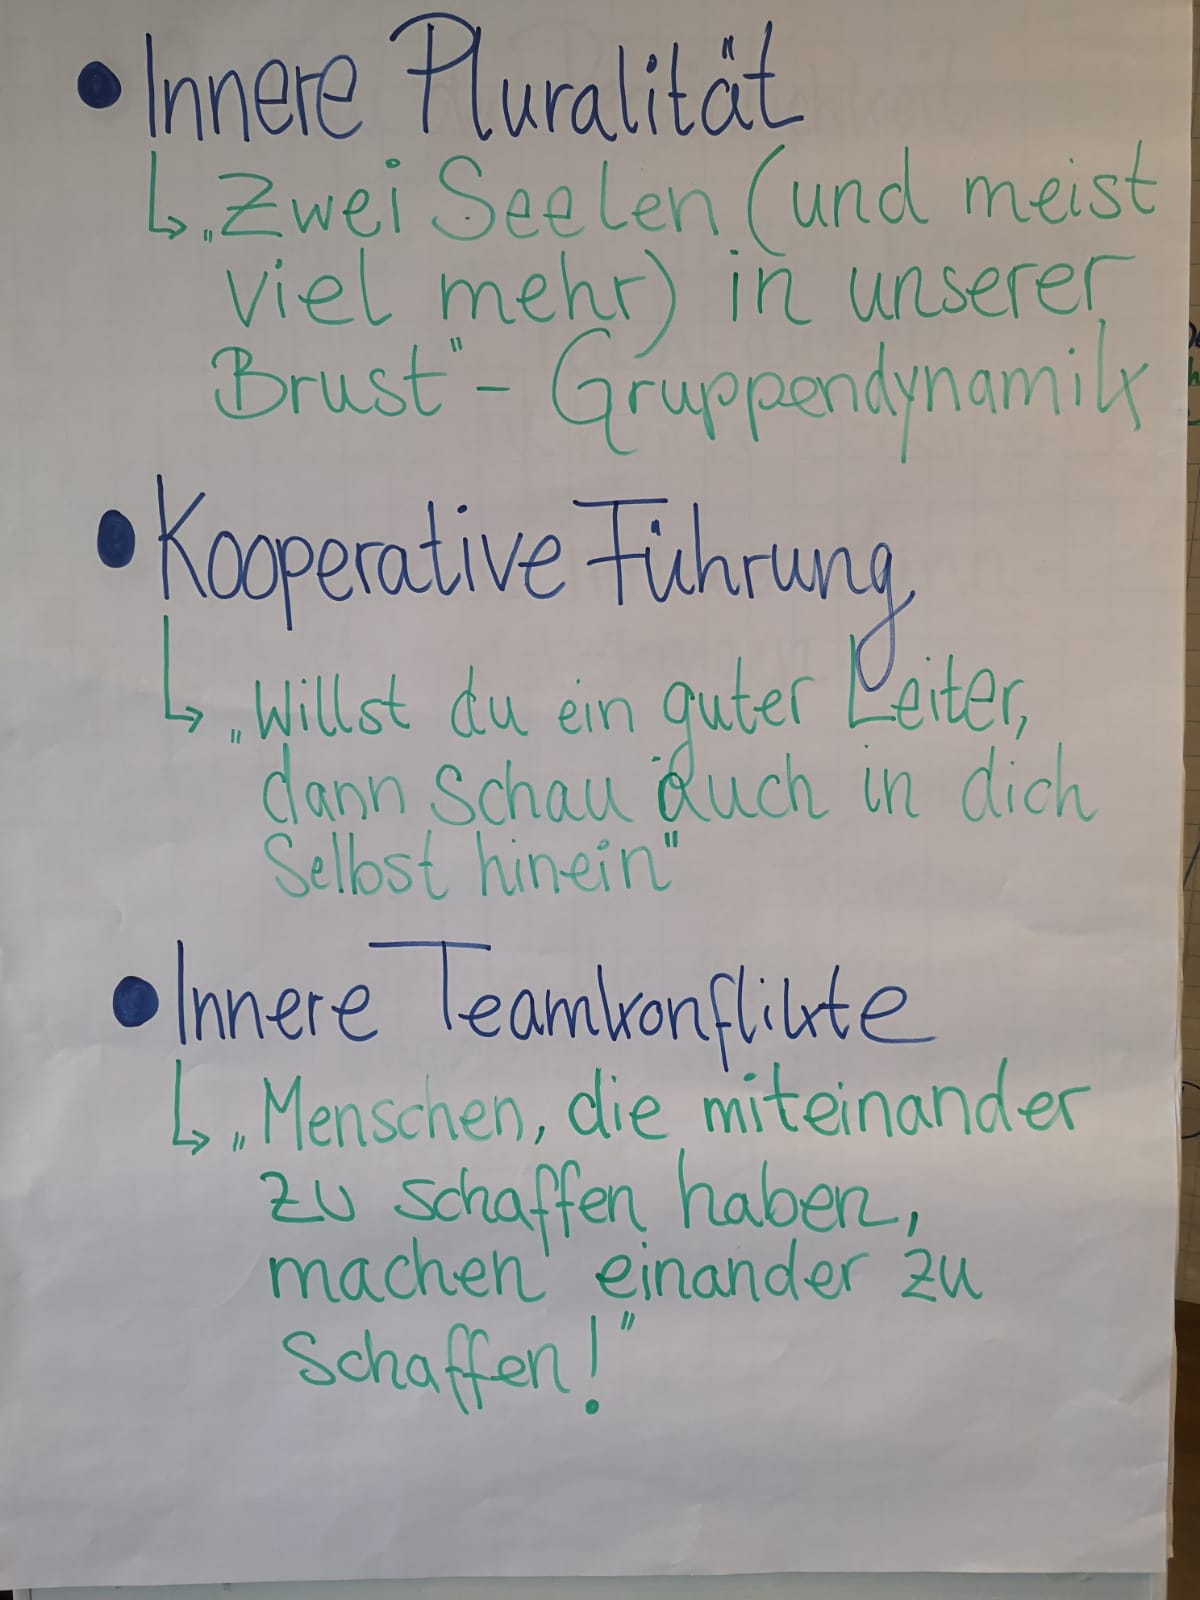 • Innere Pluralität
↳ „Zwei Seelen (und meist
viel mehr) in unserer
Brust" - Gruppendynamik
• Kooperative Führung
↳ „Willst du ein guter Leiter,
dann schau auch in dich
selbst hinein"
• Innere Teamkonflikte
↳ „Menschen, die miteinander
zu schaffen haben,
machen einander zu
schaffen!"